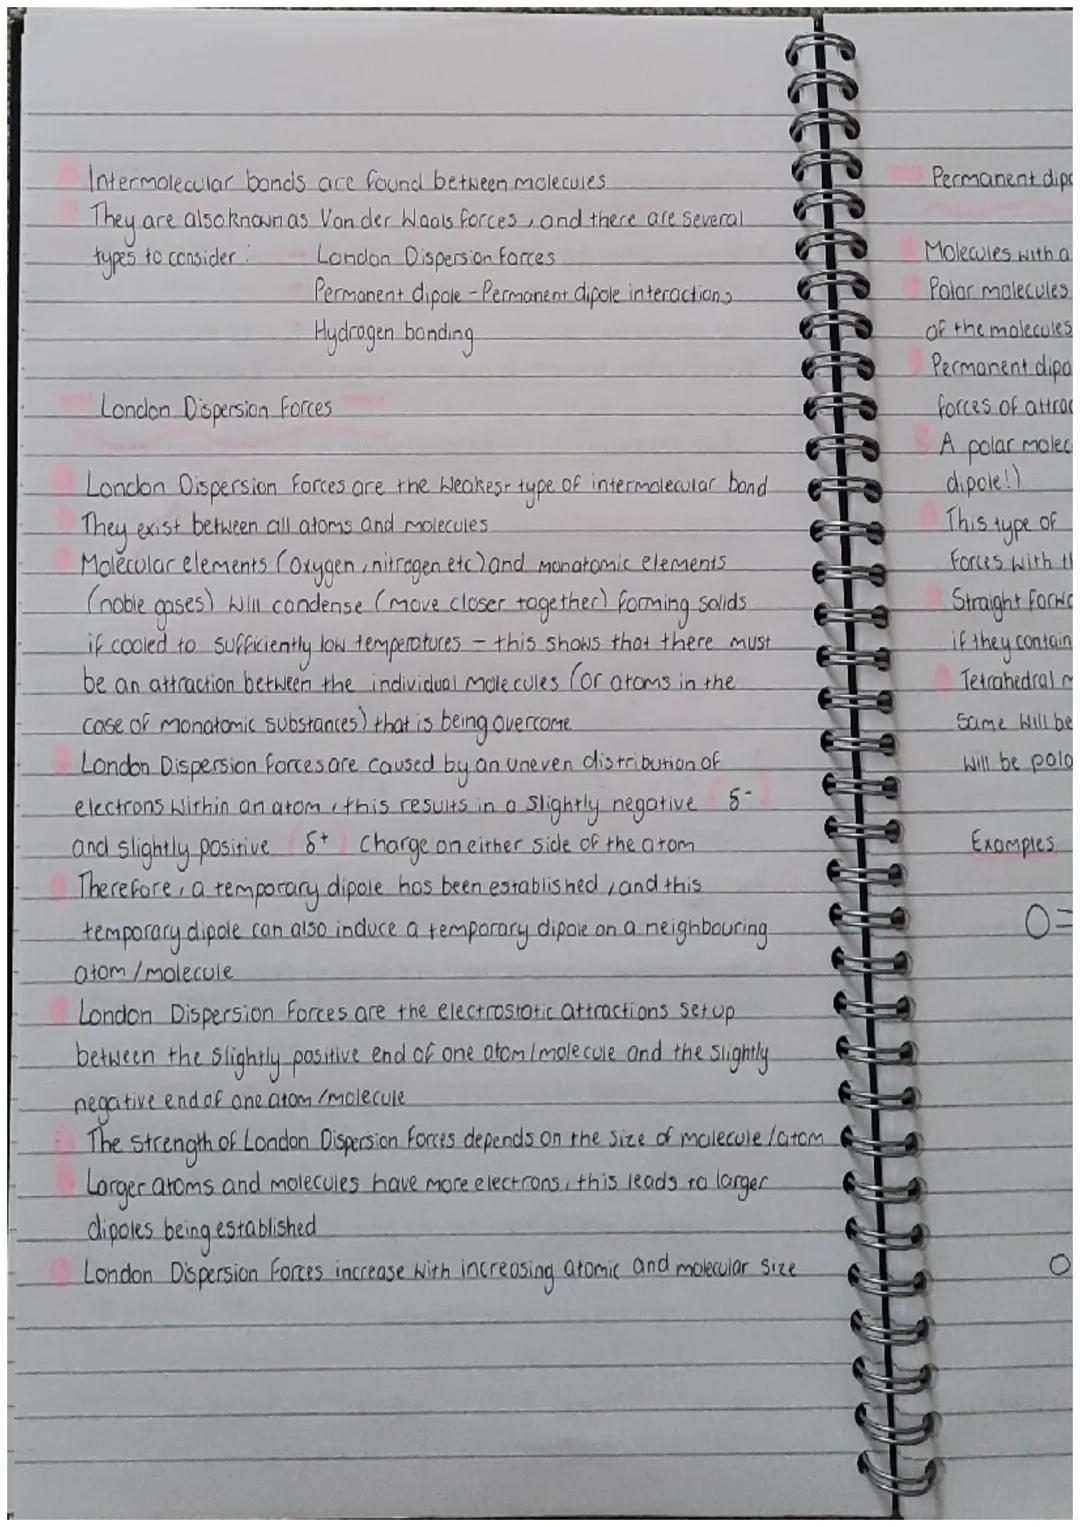 Intermolecular bonds are found between molecules
They are also known as Van der Waals forces, and there are several
types to consider: London Dispersion Forces
Permanent dipole - Permanent dipole interactions
Hydrogen bonding
London Dispersion Forces
London Dispersion Forces are the weakest type of intermolecular bond
They exist between all atoms and molecules
Molecular elements (oxygen, nitrogen etc) and monatomic elements
(noble gases) will condense (move closer together) forming solids
if cooled to sufficiently low temperatures - this shows that there must
be an attraction between the individual molecules (or atoms in the
case of monatomic substances) that is being overcome
London Dispersion Forces are caused by an uneven distribution of
electrons within an atom, this results in a slightly negative (δ-)
and slightly positive (δ+) charge on either side of the atom
Therefore, a temporary dipole has been established, and this
temporary dipole can also induce a temporary dipole on a neighbouring
atom/molecule
London Dispersion Forces are the electrostatic attractions set up
between the slightly positive end of one atom/molecule and the slightly
negative end of one atom/molecule
The strength of London Dispersion Forces depends on the size of molecule/atom
Larger atoms and molecules have more electrons, this leads to larger
dipoles being established
London Dispersion Forces increase with increasing atomic and molecular size
Permanent dipo
Molecules with a
Polar molecules
of the molecules
Permanent dipo
forces of attrac
A polar molec
dipole!)
This type of
Forces with th
Straight forwa
if they contain
Tetrahedral m
same will be
will be pola
Examples
O=
O